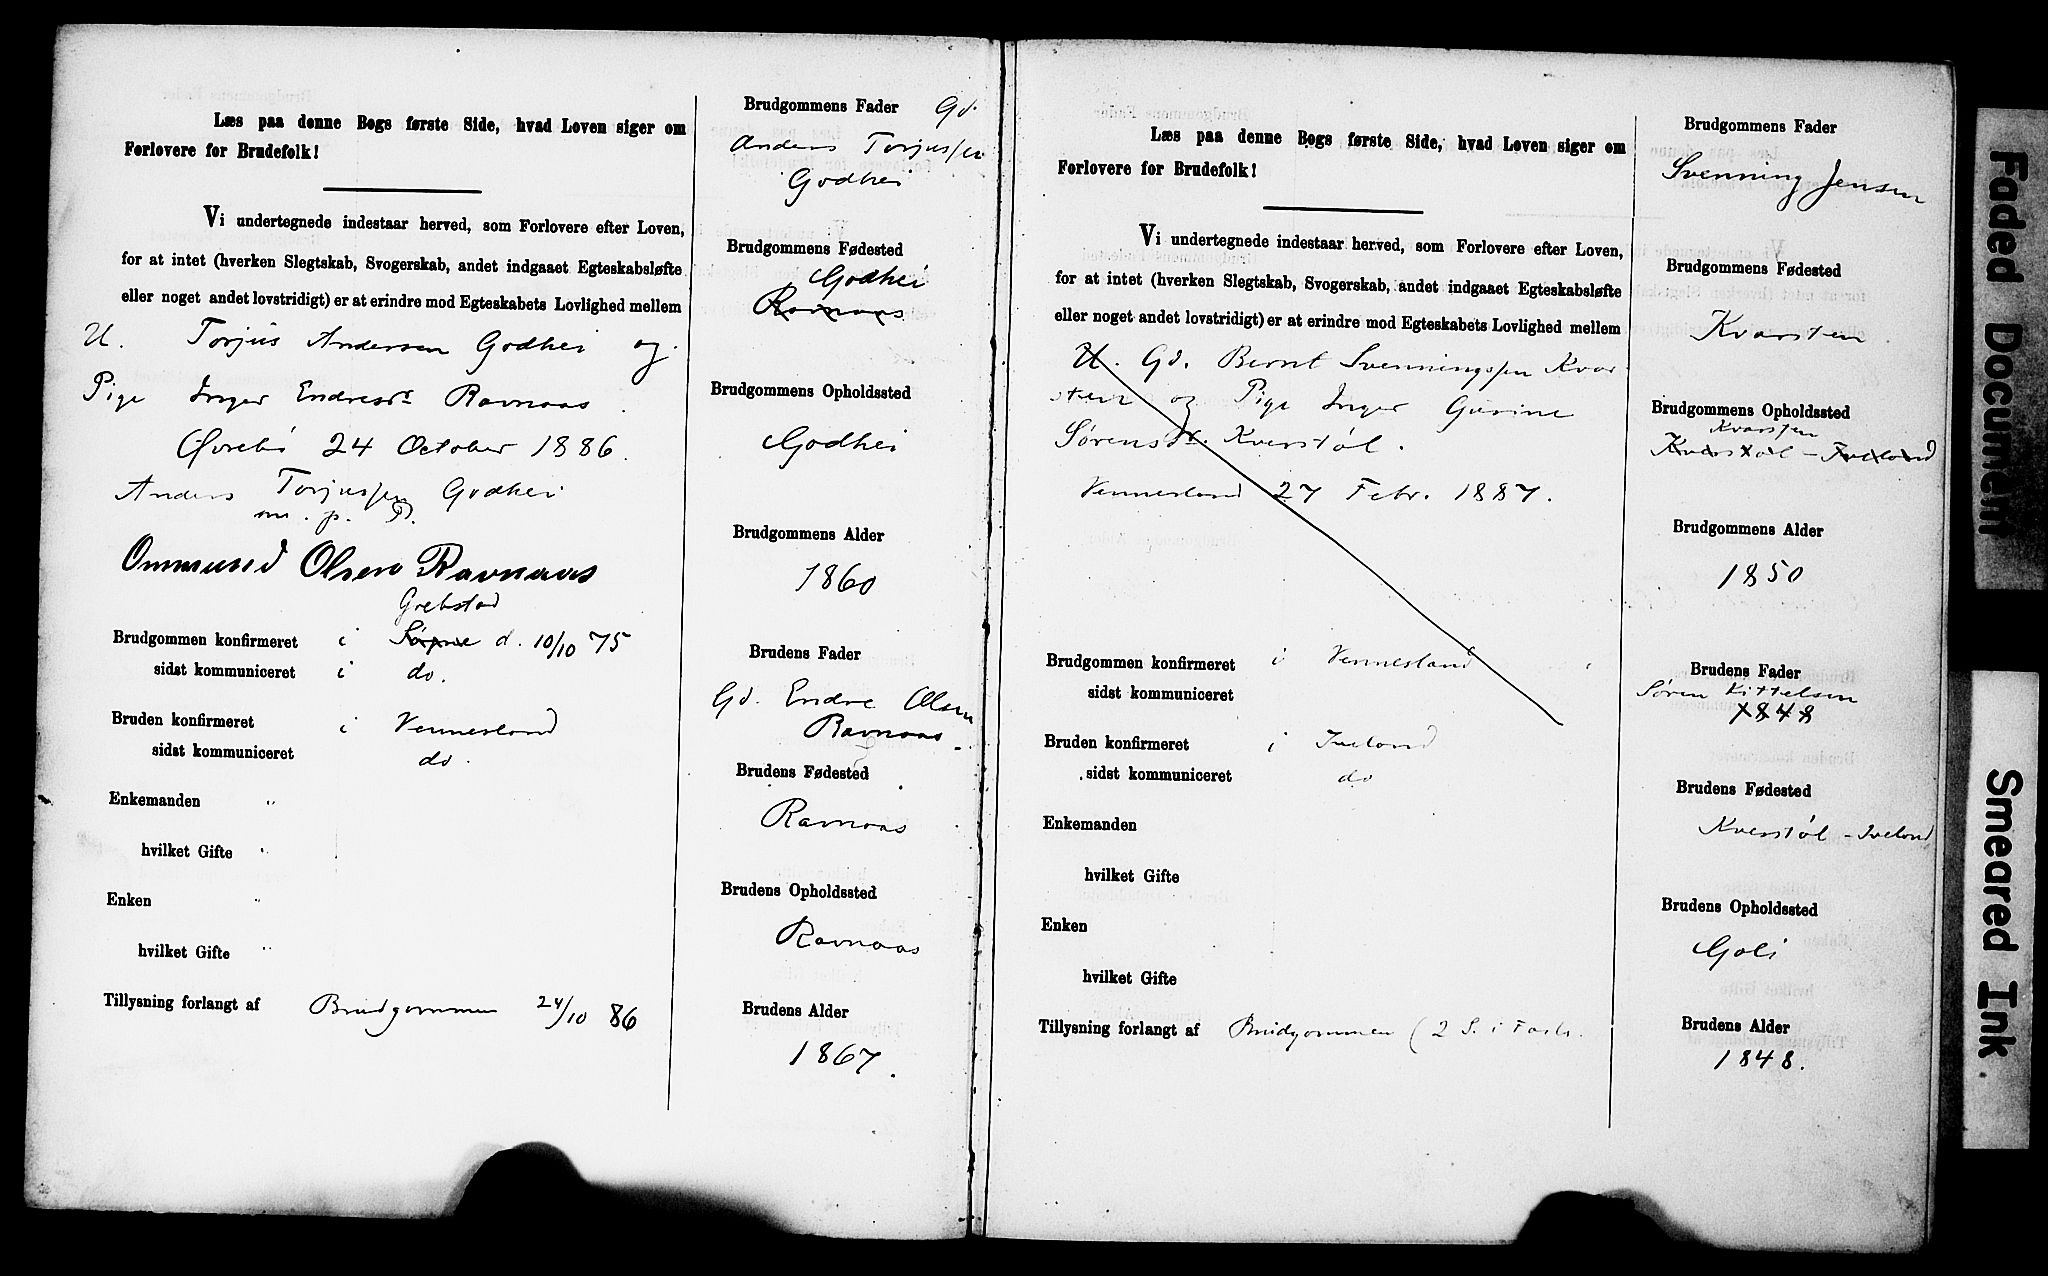 Læs paa denne Bogs første Side, hvad Loven siger om
Forlovere for Brudefolk!
Vi undertegnede indestaar herved, som Forlovere efter Loven,
for at intet (hverken Slegtskab, Svogerskab, andet indgaaet Egteskabsløfte
eller noget andet lovstridigt) er at erindre mod Egteskabets Lovlighed mellem
U. Torjus Andersen Godhei og
Pige Inger Endresdr. Ravnaas.
Øvrebø 24 October 1886.
Anders Torjussen Godhei
m. p. P.
Ommund Olsen Ravnaas
Grebstad
Brudgommen konfirmeret i Søgne d. 10/10 75
sidst kommuniceret i do.
Bruden konfirmeret i Vennesland
sidst kommuniceret do.
Enkemanden "
hvilket Gifte "
Enken "
hvilket Gifte "
Tillysning forlangt af Brudgommen 24/10 86
Brudgommens Fader Gd.
Anders Torjussen
Godhei
Brudgommens Fødested
Godhei
Ravnaas
Brudgommens Opholdssted
Godhei
Brudgommens Alder
1860
Brudens Fader
Gd. Endre Olsen
Ravnaas.
Brudens Fødested
Ravnaas
Brudens Opholdssted
Ravnaas
Brudens Alder
1867.
Læs paa denne Bogs første Side, hvad Loven siger om
Forlovere for Brudefolk!
Vi undertegnede indestaar herved, som Forlovere efter Loven,
for at intet (hverken Slegtskab, Svogerskab, andet indgaaet Egteskabsløfte
eller noget andet lovstridigt) er at erindre mod Egteskabets Lovlighed mellem
U. Gd. Bernt Svenningsen Kvar
sten og Pige Inger Gurine
Sørensdr. Kverstøl.
Vennesland 27 Febr. 1887.
Brudgommen konfirmeret i Vennesland
sidst kommuniceret
Bruden konfirmeret i Iveland
sidst kommuniceret do
Enkemanden
hvilket Gifte
Enken
hvilket Gifte
Tillysning forlangt af Brudgommen (2 S. i Faste.
Brudgommens Fader
Svenning Jensen
Brudgommens Fødested
Kvarsten
Brudgommens Opholdssted
Kvarsten
Kverstøl - Iveland
Brudgommens Alder
1850
Brudens Fader
Søren Kittelsen
1848
Brudens Fødested
Kverstøl - Iveland
Brudens Opholdssted
Goli
Brudens Alder
1848.
Faded Document
Smeared Ink